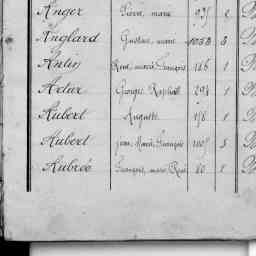 Anger Pierre, marie 235 2
Anglard Gustave, marie 1053 3
Antin René, marie, François 166 1
Artur Georges Raphaël 294 1
Aubert Auguste 156 1
Aubert Jean, Marie, François 1105 5
Aubrée François, marie, René 80 1